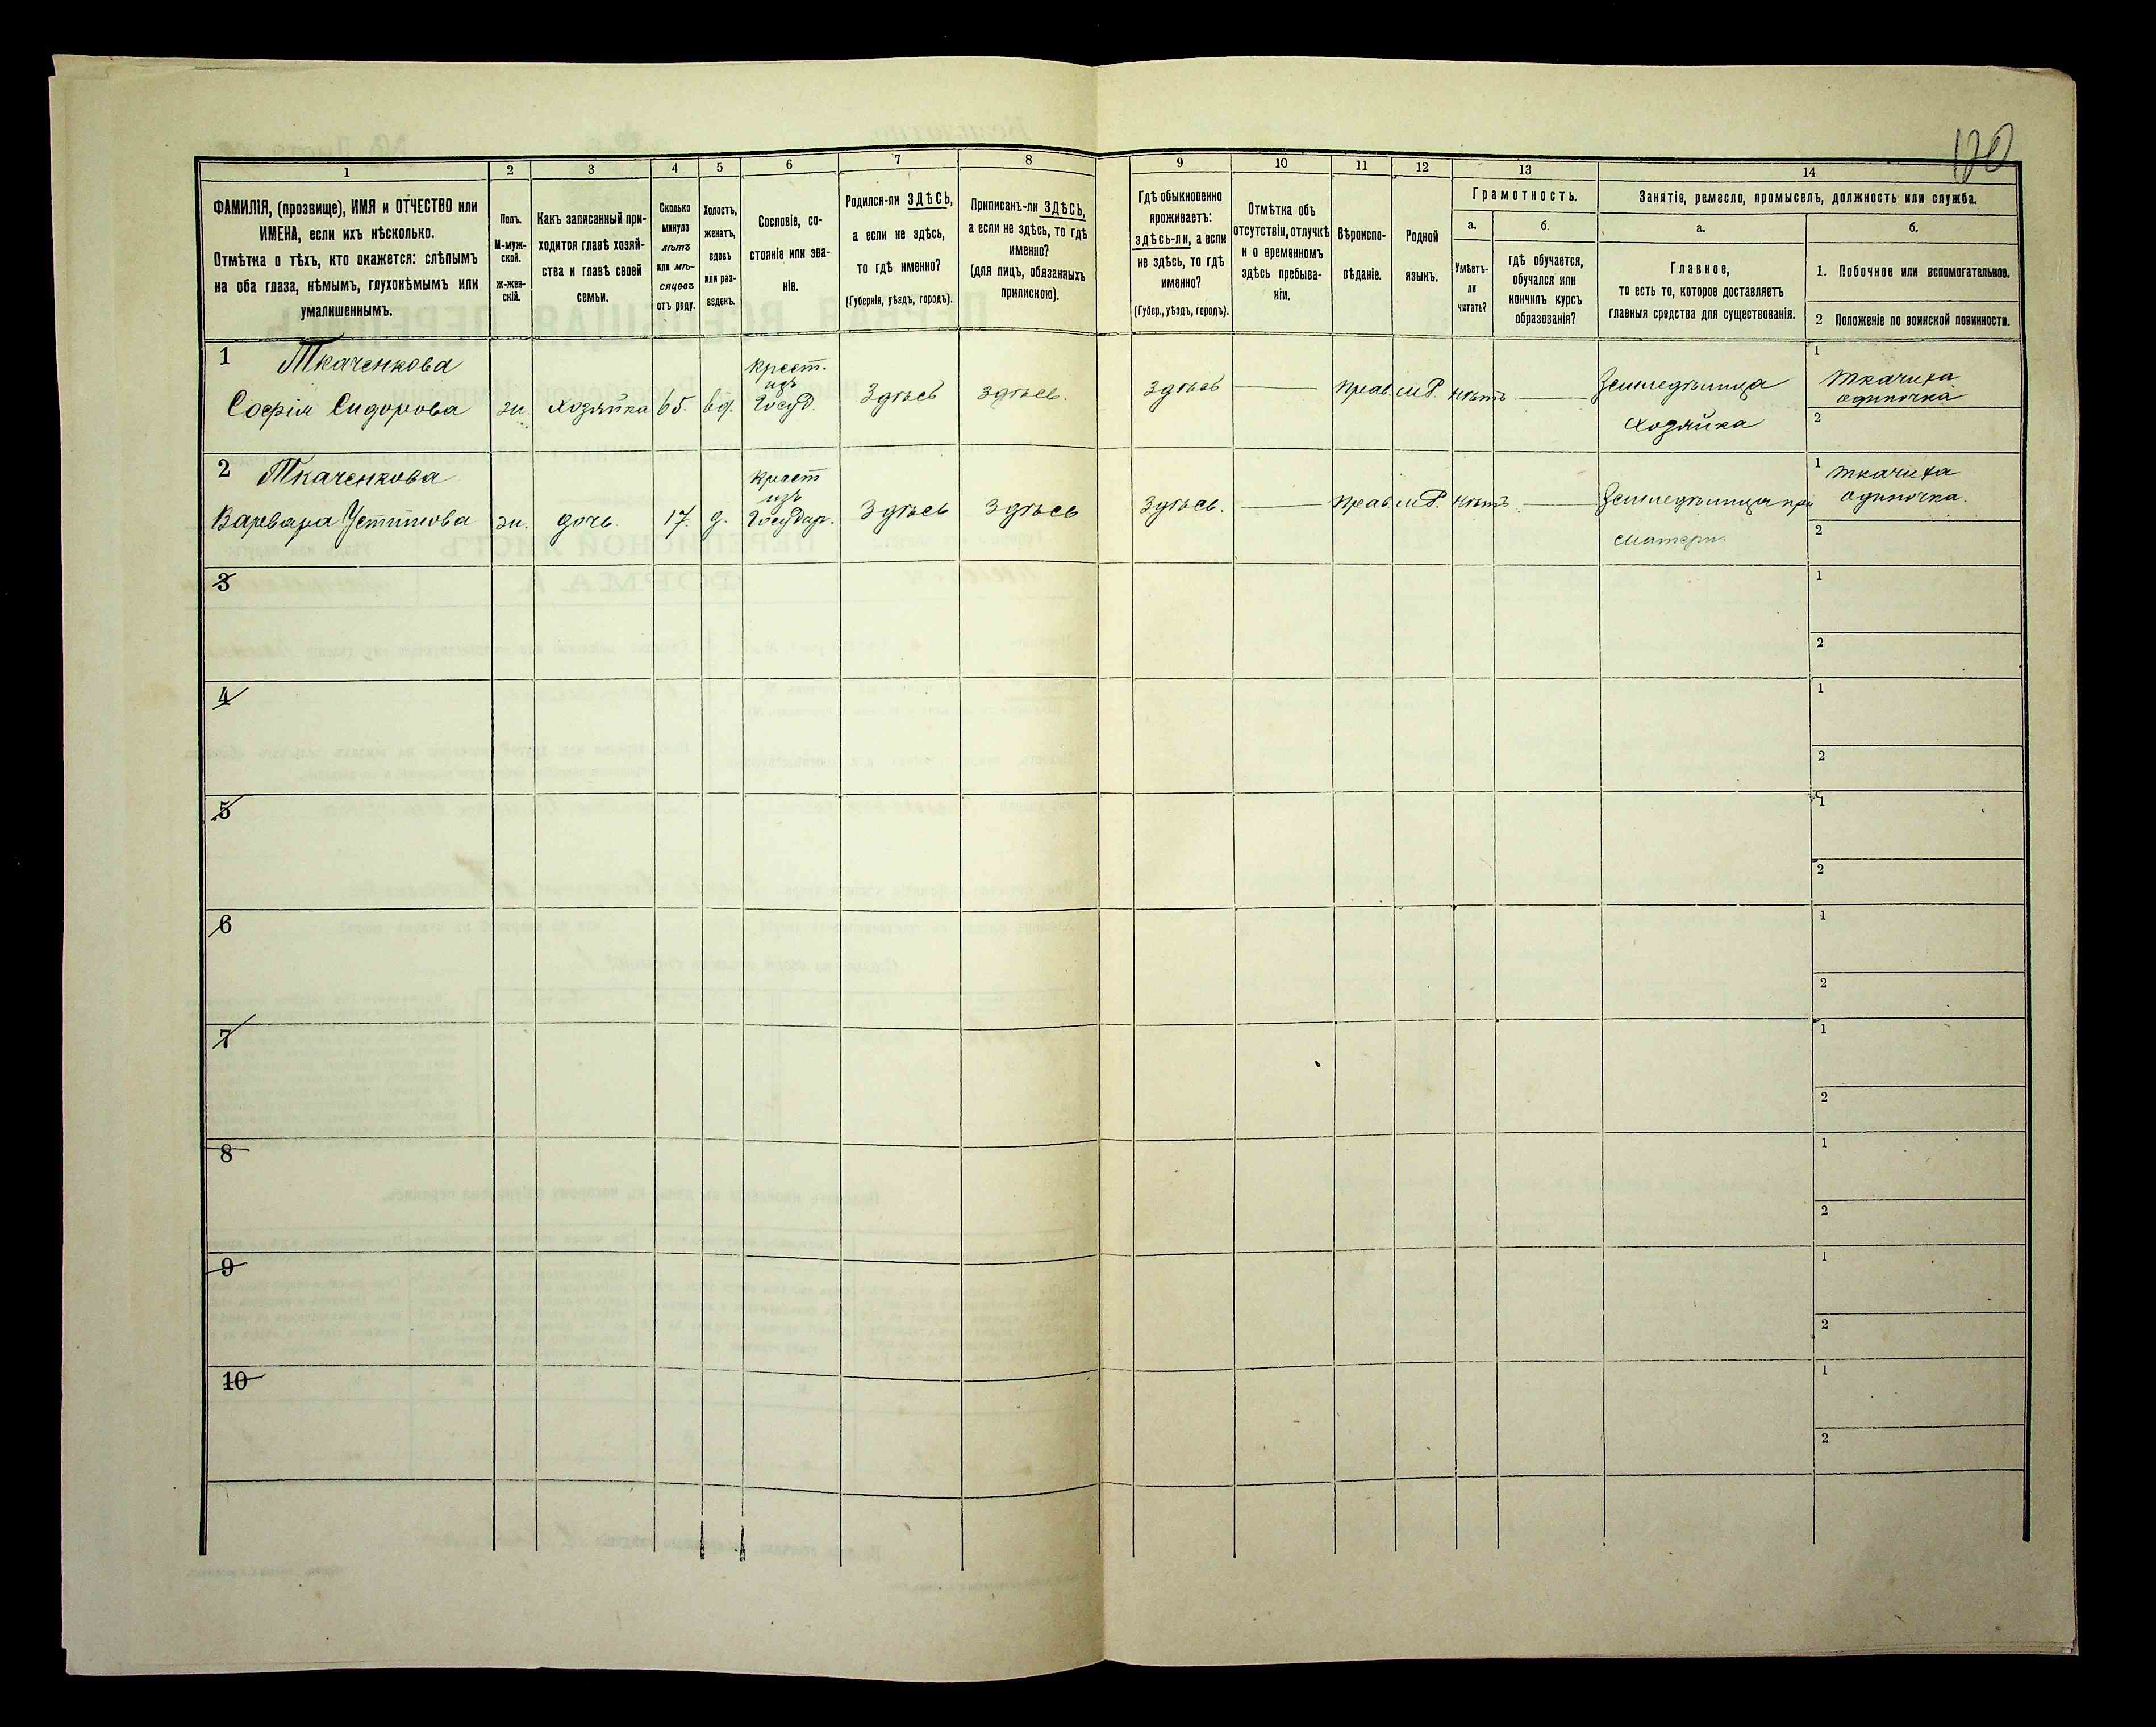 120
1
2
3
4
5
6
7
8
9
10
11
12
13
14
ФАМИЛІЯ, (прозвище), ИМЯ и ОТЧЕСТВО или
ИМЕНА, если ихъ нѣсколько.
Отмѣтка о тѣхъ, кто окажется: слѣпымъ
на оба глаза, нѣмымъ, глухонѣмымъ или
умалишеннымъ.
Полъ.
М-муж-
ской.
ж-жен-
скій.
Какъ записанный при-
ходится главѣ хозяй-
ства и главѣ своей
семьи.
Сколько
минуло
лѣтъ
или мѣ-
сяцевъ
отъ роду.
Холостъ,
женатъ,
вдовъ
или раз-
веденъ.
Сословіе, со-
стояніе или зва-
ніе.
Родился-ли ЗДѢСЬ,
а если не здѣсь,
то гдѣ именно?
(Губернія, уѣздъ, городъ).
Приписанъ-ли ЗДѢСЬ,
а если не здѣсь, то гдѣ
именно?
(для лицъ, обязанныхъ
припискою).
Гдѣ обыкновенно
проживаетъ:
здѣсь-ли, а если
не здѣсь, то гдѣ
именно?
(Губер., уѣздъ, городъ).
Отмѣтка объ
отсутствіи, отлучкѣ
и о временномъ
здѣсь пребыва-
ніи.
Вѣроиспо-
вѣданіе.
Родной
языкъ.
Грамотность.
а.
Умѣетъ-
ли
читать?
б.
гдѣ обучается,
обучался или
кончилъ курсъ
образованія?
Занятіе, ремесло, промыселъ, должность или служба.
а.
Главное,
то есть то, которое доставляетъ
главныя средства для существованія.
б.
1. Побочное или вспомогательное.
2 Положеніе по воинской повинности.
1 Ткаченкова
Софія Сидорова
жн.
хозяйка
65.
вд.
Крест.
изъ
Госуд.
Здѣсь
здѣсь.
здѣсь
Прав.
мР.
нѣтъ
Земледѣлица
хозяйка
1 ткачиха
одиночка
2
2 Ткаченкова
Варвара Устинова
жн.
дочь.
17.
д.
Крест
изъ
Государ.
Здѣсь
Здѣсь
Здѣсь.
Прав.
мР.
нѣтъ
Земледѣлица при
матери.
1 ткачиха
одиночка.
2
3
1
2
4
1
2
5
1
2
6
1
2
7
1
2
8
1
2
9
1
2
10
1
2